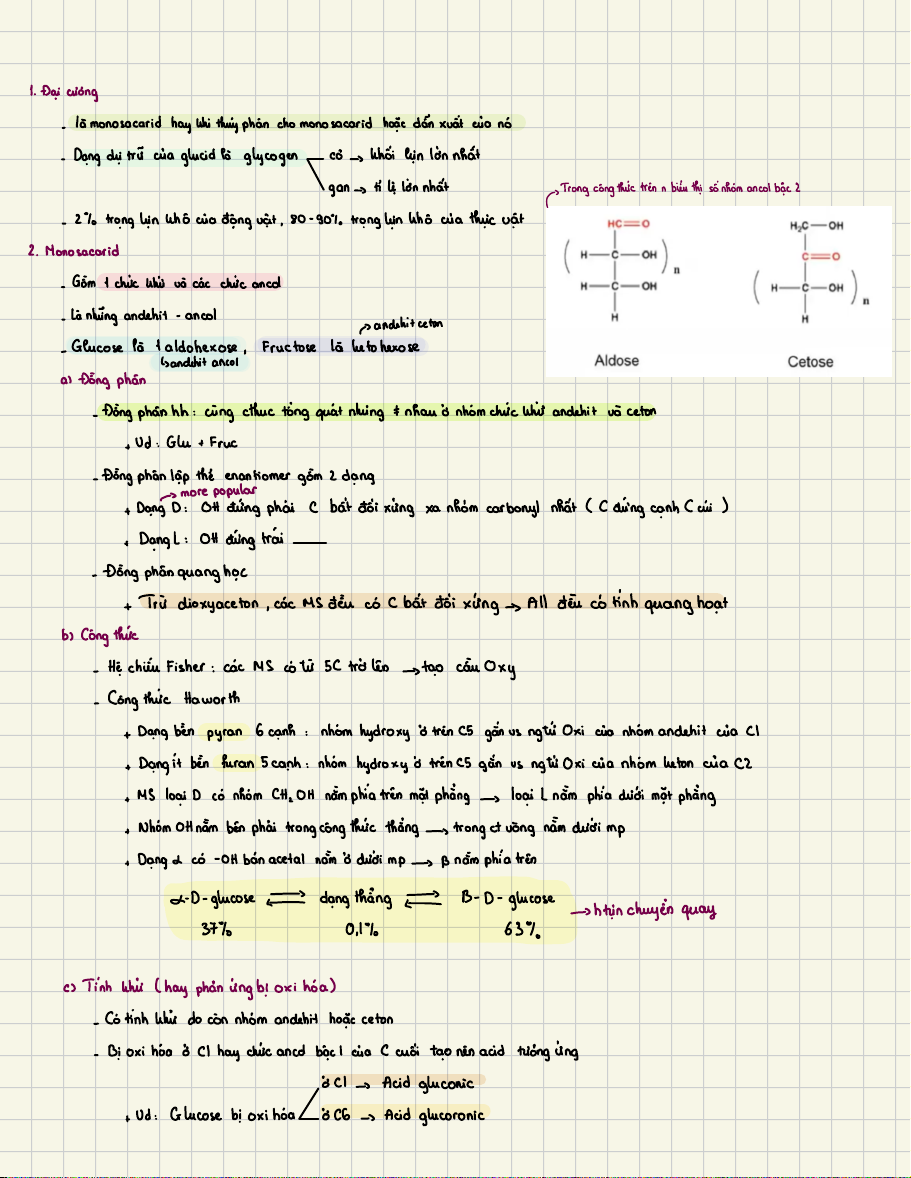 1. Đại cương
- là monosacarid hay khi thủy phân cho monosacarid hoặc dẫn xuất của nó
- Dạng dự trữ của glucid là glycogen cơ → khối lượn lớn nhất
gan → tỉ lệ lớn nhất
- 2% trọng lượn khô của động vật, 80-90% trọng lượn khô của thực vật
→ Trong công thức trên n biểu thị số nhóm ancol bậc 2
HC=O
( H-C-OH )n
H-C-OH
H
Aldose
H₂C-OH
C=O
( H-C-OH )n
H
Cetose
2. Monosacarid
- Gồm 1 chức khử và các chức ancol
- Là những andehit - ancol
→ andehit ceton
- Glucose là 1 aldohexose, Fructose là ketohexose
↳ andehit ancol
a) Đồng phân
- Đồng phân hh: cùng cthức tổng quát nhưng ≠ nhau ở nhóm chức khử andehit và ceton
+ Vd: Glu + Fruc
- Đồng phân lập thể enantiomer gồm 2 dạng
→ more popular
+ Dạng D: OH đứng phải C bất đối xứng xa nhóm carbonyl nhất ( C đứng cạnh C cúi )
+ Dạng L: OH đứng trái ____
- Đồng phân quang học
+ Trừ dioxyaceton, các MS đều có C bất đối xứng → All đều có tính quang hoạt
b) Công thức
- Hệ chiếu Fisher: các MS có từ 5C trở lên → tạo cầu Oxy
- Công thức Haworth
+ Dạng bền pyran 6 cạnh: nhóm hydroxy ở trên C5 gắn vs ngtử Oxi của nhóm andehit của C1
+ Dạng ít bền furan 5 cạnh: nhóm hydroxy ở trên C5 gắn vs ngtử Oxi của nhóm keton của C2
+ MS loại D có nhóm CH₂OH nằm phía trên mặt phẳng → loại L nằm phía dưới mặt phẳng
+ Nhóm OH nằm bên phải trong công thức thẳng → trong ct vòng nằm dưới mp
+ Dạng α có -OH bán acetal nằm ở dưới mp → β nằm phía trên
α-D-glucose ⇌ dạng thẳng ⇌ β-D-glucose → htựn chuyển quay
37% 0,1% 63%
c) Tính khử (hay phản ứng bị oxi hóa)
- Có tính khử do còn nhóm andehit hoặc ceton
- Bị oxi hóa ở C1 hay chức ancol bậc 1 của C cuối tạo nên acid tương ứng
ở C1 → Acid gluconic
+ Vd: Glucose bị oxi hóa ở C6 → Acid glucoronic